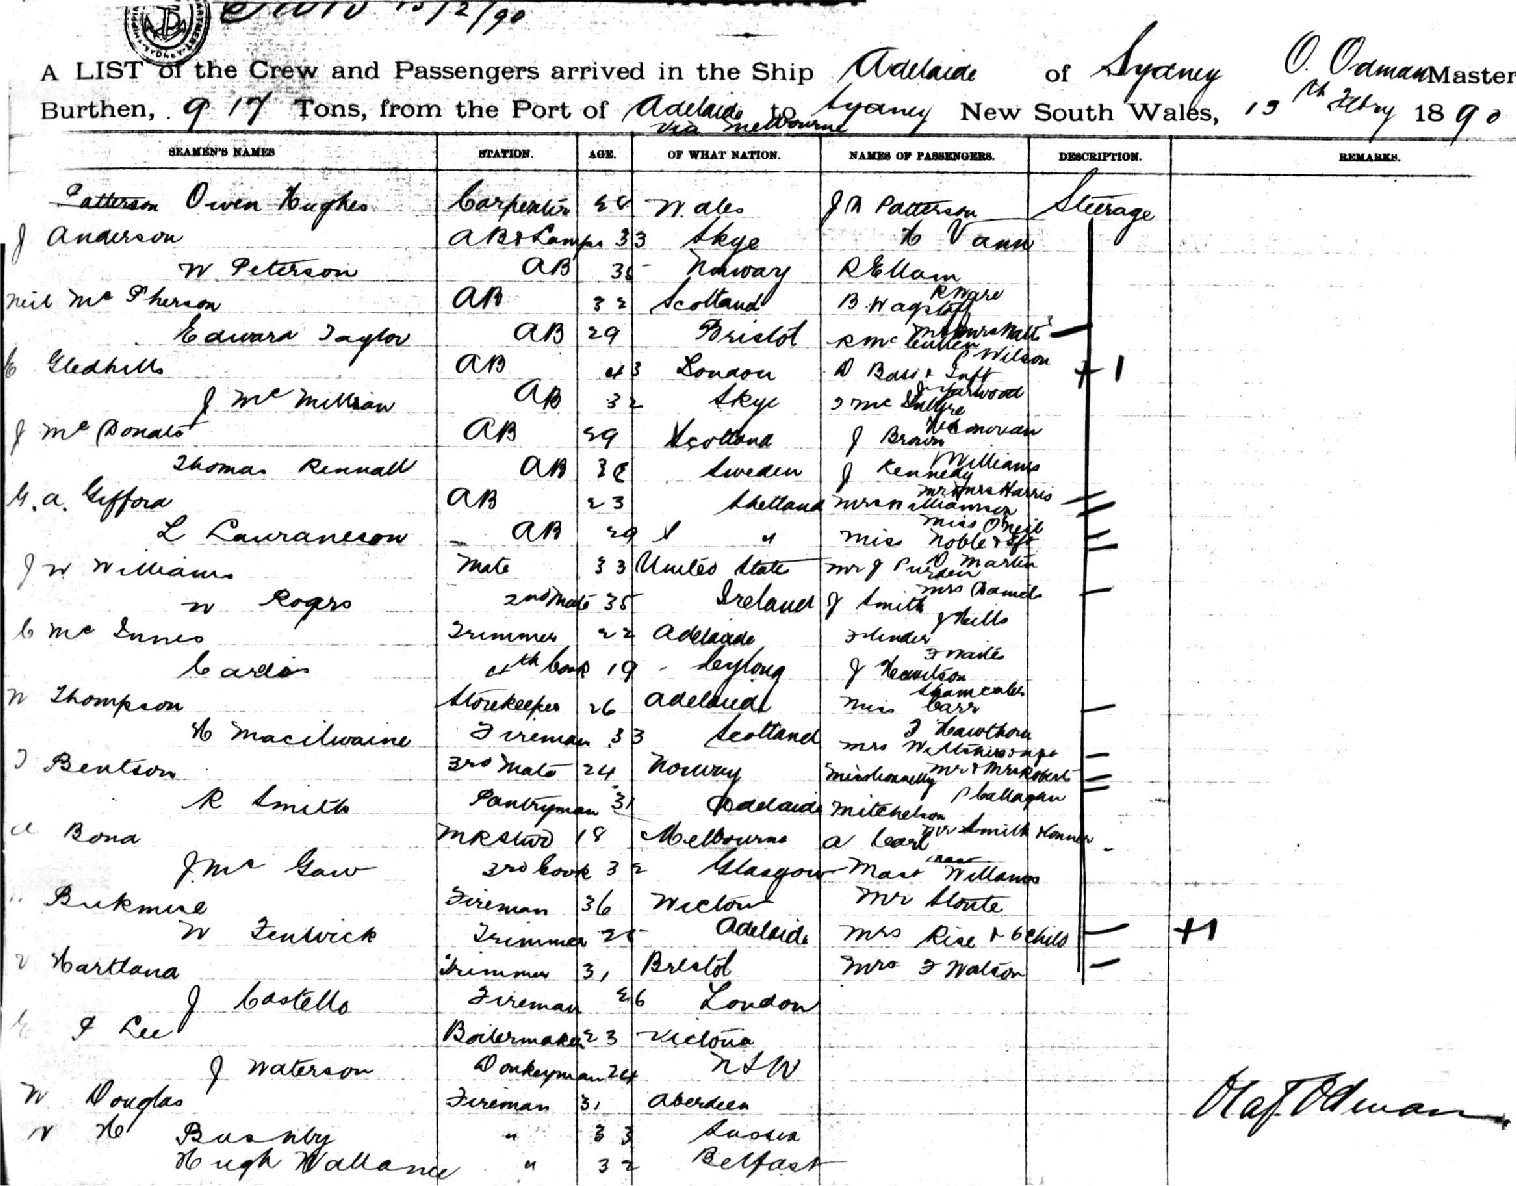 15/2/90
A LIST of the Crew and Passengers arrived in the Ship Adelaide of Sydney O. Odman Master
Burthen, 917 Tons, from the Port of Adelaide to Sydney New South Wales, 15th Febry 1890
via Melbourne
SEAMEN'S NAMES STATION. AGE. OF WHAT NATION. NAMES OF PASSENGERS. DESCRIPTION. REMARKS.
Patterson Owen Hughes Carpenter 28 Wales J Patterson Steerage
J Anderson AB & Lamps 33 Skye H Vann
W Peterson AB Norway R Ellam
R Ware
Neil McPherson AB 32 Scotland B Wagstaff
Mr & Mrs Watts
Edward Taylor AB 29 Bristol R McCullen
P Wilson
C Gledhills AB 43 London D Bass & Inft +1
J Yarwood
J McMillian AB 32 Skye J McIntyre
J McDonald AB 29 Scotland J Brown
Williams
Thomas Rennall AB Sweden J Kennedy
Mr & Mrs Harris
G. A. Gifford AB 23 Shetland Mrs Williamson
Miss O'Neil
L Lauraneson AB 29 " Miss Noble & Ift
D Martin
J W Williams Mate 33 United State Mr J Purden
Mrs Daniels
W Rogers 2nd Mate 35 Ireland J Smith
J Hills
C McInnes Trimmer 22 Adelaide Flinders
Cardis 4th Cook 19 Ceylong J Hewitson
W Thompson Storekeeper 26 Adelaide Miss Carr
F Hawthorn
H Macilwaine Fireman 33 Scotland Mrs Wiltshire
Mr & Mrs Roberts
T Bentson 3rd Mate 24 Norway Miss Donnelly
P Callagan
R Smith Pantryman 31 Adelaide Mitchelson
Mr Smith
A Bona 18 Melbourne A Carl
J McGaw 3rd Cook 32 Glasgow Mast Williams
Birkmire Fireman 36 Wicton Mr Stoute
W Fenwick Trimmer 25 Adelaide Mrs Rise & 6 Childs +1
V Hartland Trimmer 31 Bristol Mrs F Watson
J Costello Fireman 26 London
P Lee Boilermaker 23 Victoria
J Waterson Donkeyman 24 NSW
W Douglas Fireman 31 Aberdeen
Olaf Odman
W H Bushby " 33 Sussex
Hugh Wallance " 32 Belfast